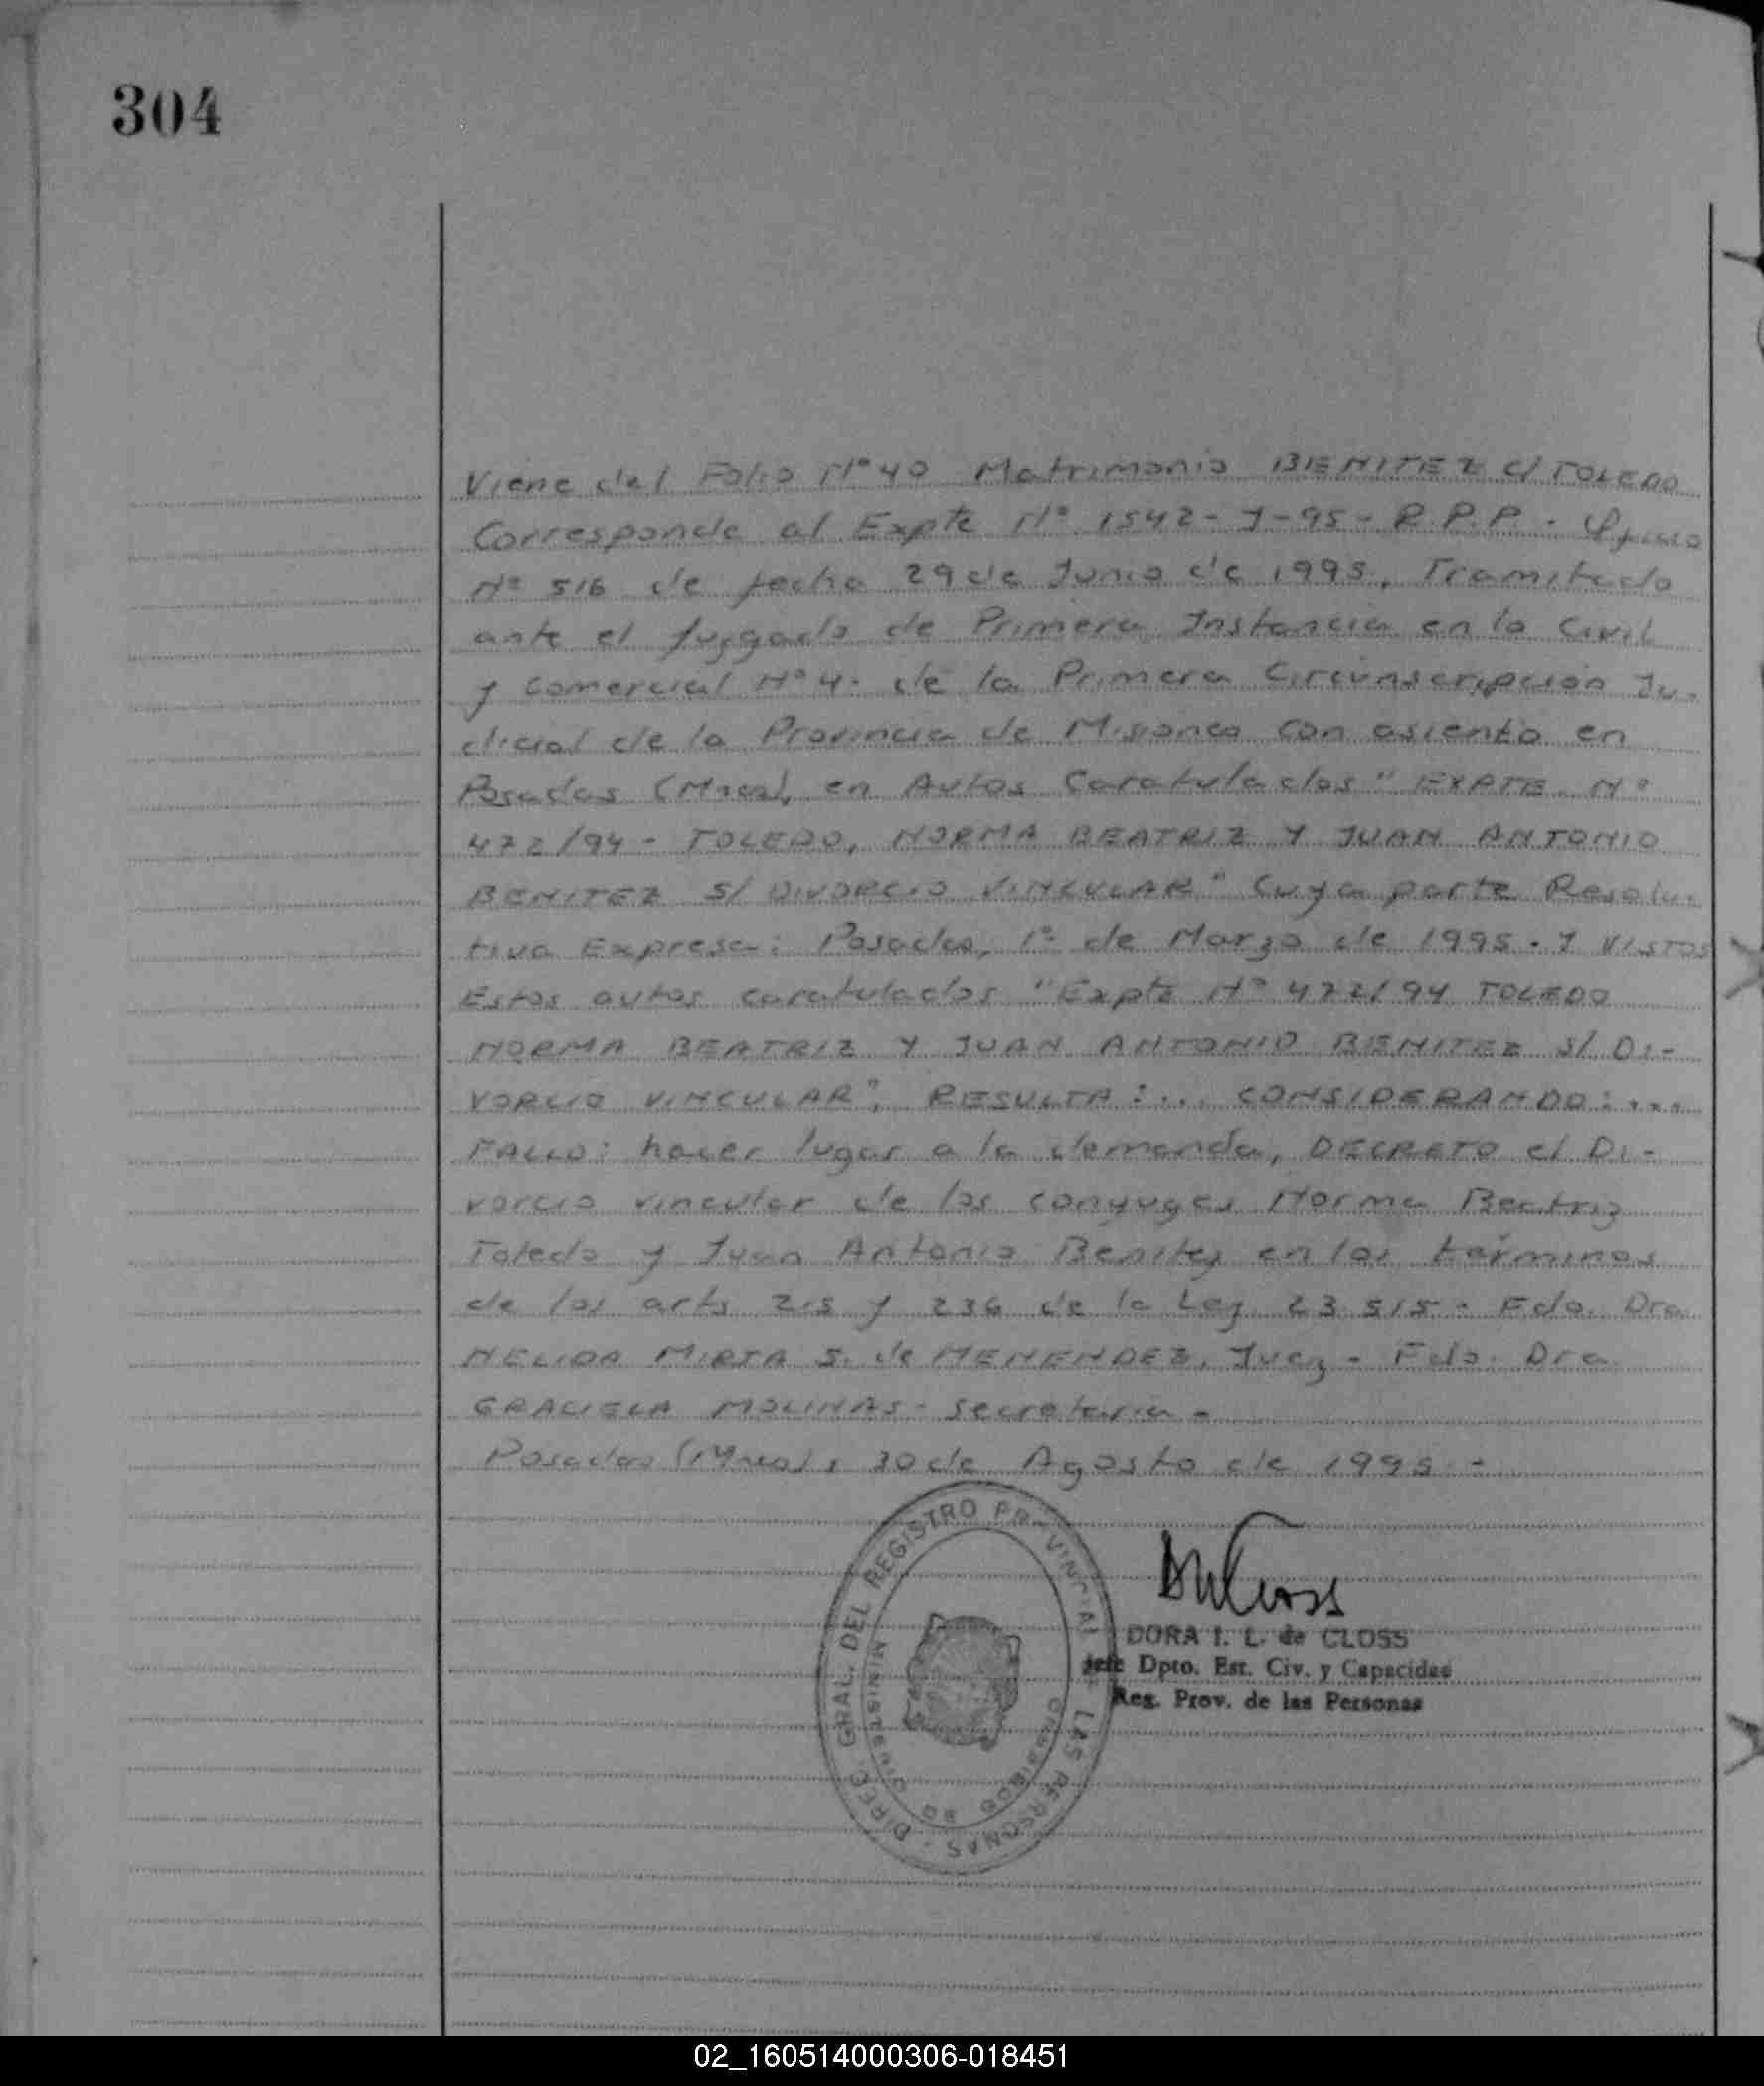 304
Viene del Folio N° 40 Matrimonio BENITEZ C/ TOLEDO
Corresponde al Expte N° 1542-J-95-R.P.P. - Oficio
N° 516 de fecha 29 de Junio de 1995, Tramitado
ante el Juzgado de Primera Instancia en lo Civil
y Comercial N° 4. de la Primera Circunscripción Ju-
dicial de la Provincia de Misiones con asiento en
Posadas (Mnes), en Autos Caratulados "EXPTE. N°
472/94 - TOLEDO, NORMA BEATRIZ Y JUAN ANTONIO
BENITEZ S/ DIVORCIO VINCULAR" Cuya parte Resolu-
tiva Expresa: Posadas, 1° de Marzo de 1995. - Y VISTOS
Estos autos caratulados "Expte N° 472/94 TOLEDO
NORMA BEATRIZ Y JUAN ANTONIO BENITEZ S/ DI-
VORCIO VINCULAR", RESULTA:... CONSIDERANDO:....
FALLO: hacer lugar a la demanda, DECRETO el Di-
vorcio vincular de los conyuges Norma Beatriz
Toledo y Juan Antonio Benitez en los términos
de los arts 215 y 236 de la Ley 23.515 - Fdo. Dra
NELIDA MIRTA S. de MENENDEZ, Juez - Fdo. Dra.
GRACIELA MOLINAS - Secretaria -
Posadas (Mnes), 30 de Agosto de 1995 -
DIREC. GRAL. DEL REGISTRO PROVINCIAL LAS PERSONAS
MINISTERIO DE GOBIERNO
DORA I. L. de CLOSS
Jefe Dpto. Est. Civ. y Capacidad
Reg. Prov. de las Personas
02_160514000306-018451